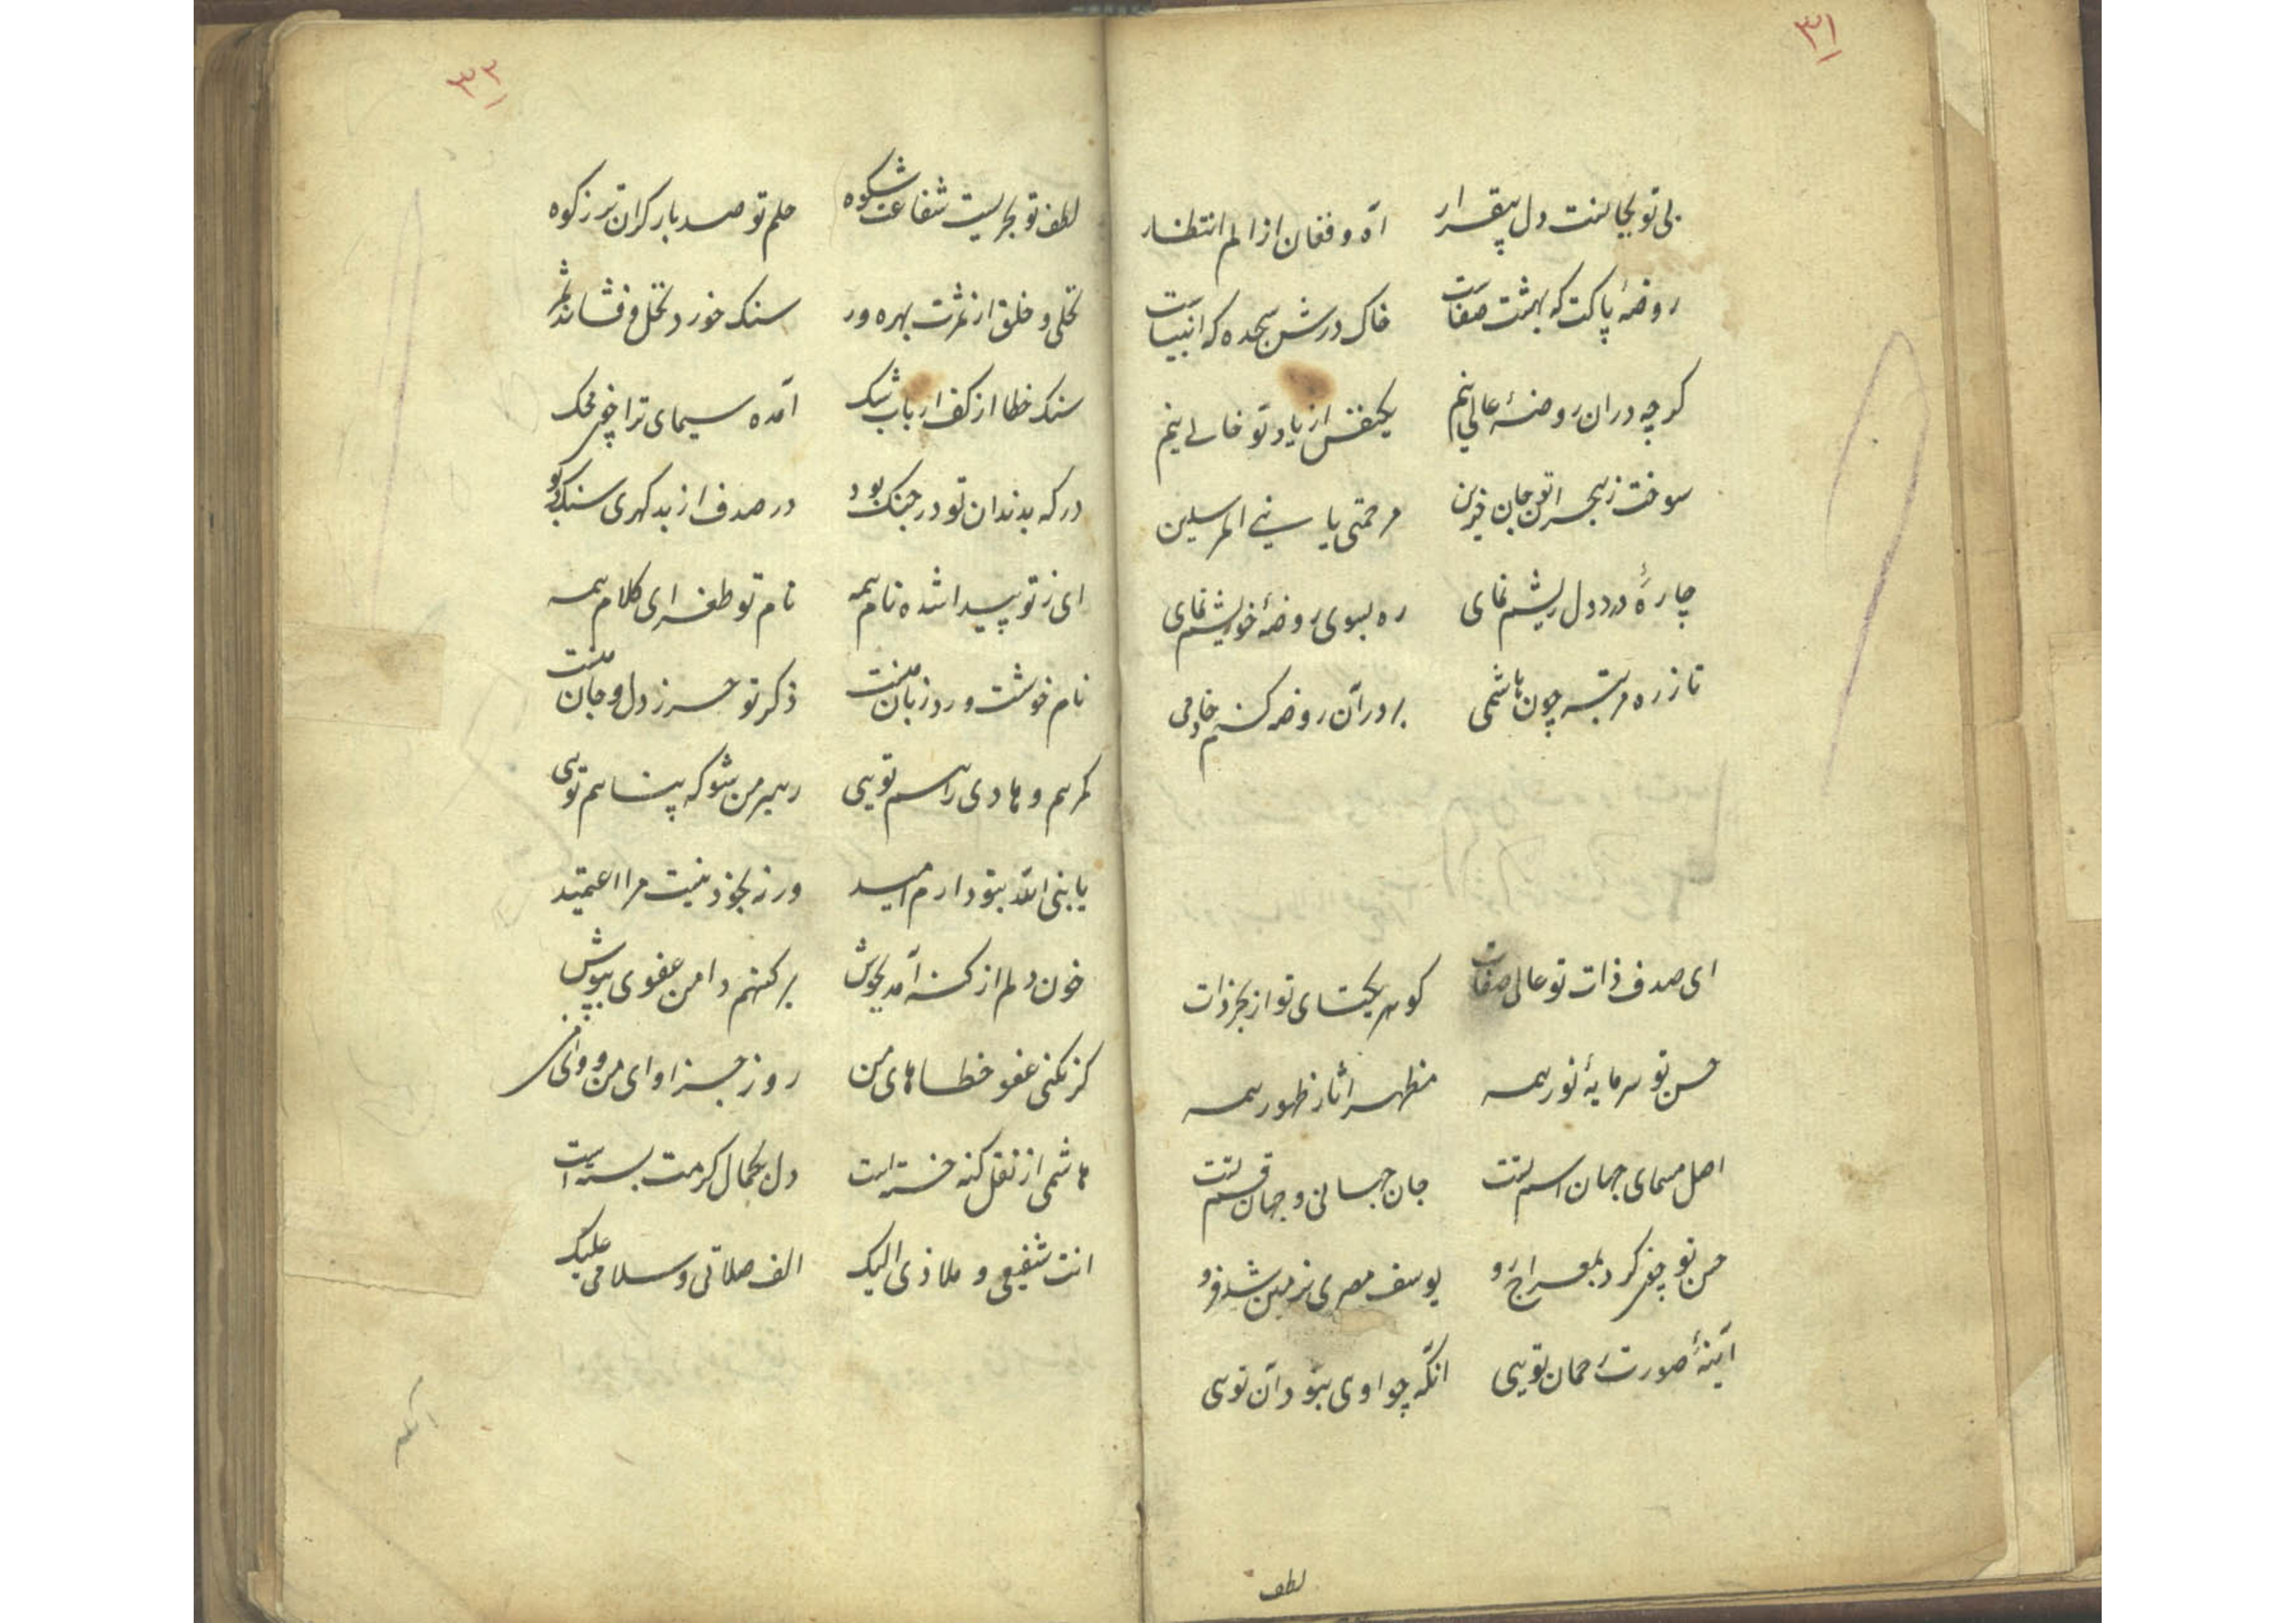 ۳۱
بی تو بجا نیست دل بیقرار آه و فغان از الم انتظار
روضهٔ پاکت که بهشت صفاست خاک درش سجده که انبیاست
کرچه دران روضهٔ عالی نیم یکنفس از یاد تو خالی نیم
سوخت ز هجر اتو جان حزین مرحمتی یا نبی المرسلین
چارهٔ درد دل ریشم نمای ره بسوی روضهٔ خویشم نمای
تا ز ره مرتبه چون هاشمی بر در آن روضه کنم خادمی
ای صدف ذات تو عالی صفات کوهر یکتای تو از بحر ذات
حسن تو سرمایهٔ نور همه مظهر اثار ظهور همه
اصل مسمای جهان اسم تست جان جهانی و جهان قسم تست
حسن تو چون کرد بمعراج رو یوسف مصری بزمین شد فرو
آینهٔ صورت رحمان تویی انکه چو اوی بتو دان تویی
لطف
۳۲
لطف تو بحریست شفاعت شکوه حلم تو صد بار کران تر ز کوه
نخلی و خلق از ثمرت بهره ور سنک خورد نخل و فشاند ثمر
سنک خطا از کف ارباب شک آمده سیمای ترا چون محک
در که بدندان تو در جنک بود در صدف از بد کهری سنک بود
ای ز تو پیدا شده نام همه نام تو طغرای کلام همه
نام خوشت ورد زبان منست ذکر تو حرز دل و جان منست
کمرهم و هادی راهم تویی رهبر من شو که پناهم تویی
یا نبی الله بتو دارم امید ورنه بخود نیست مرا اعتمید
خون دلم از کنه آمد بجوش بر کنهم دامن عفوی بپوش
کر نکنی عفو خطاهای من روز جزا وای من و وای من
هاشمی از ثقل کنه خسته است دل بجمال کرمت بسته است
انت شفیعی و ملاذی الیک الف صلاتی و سلامی علیک